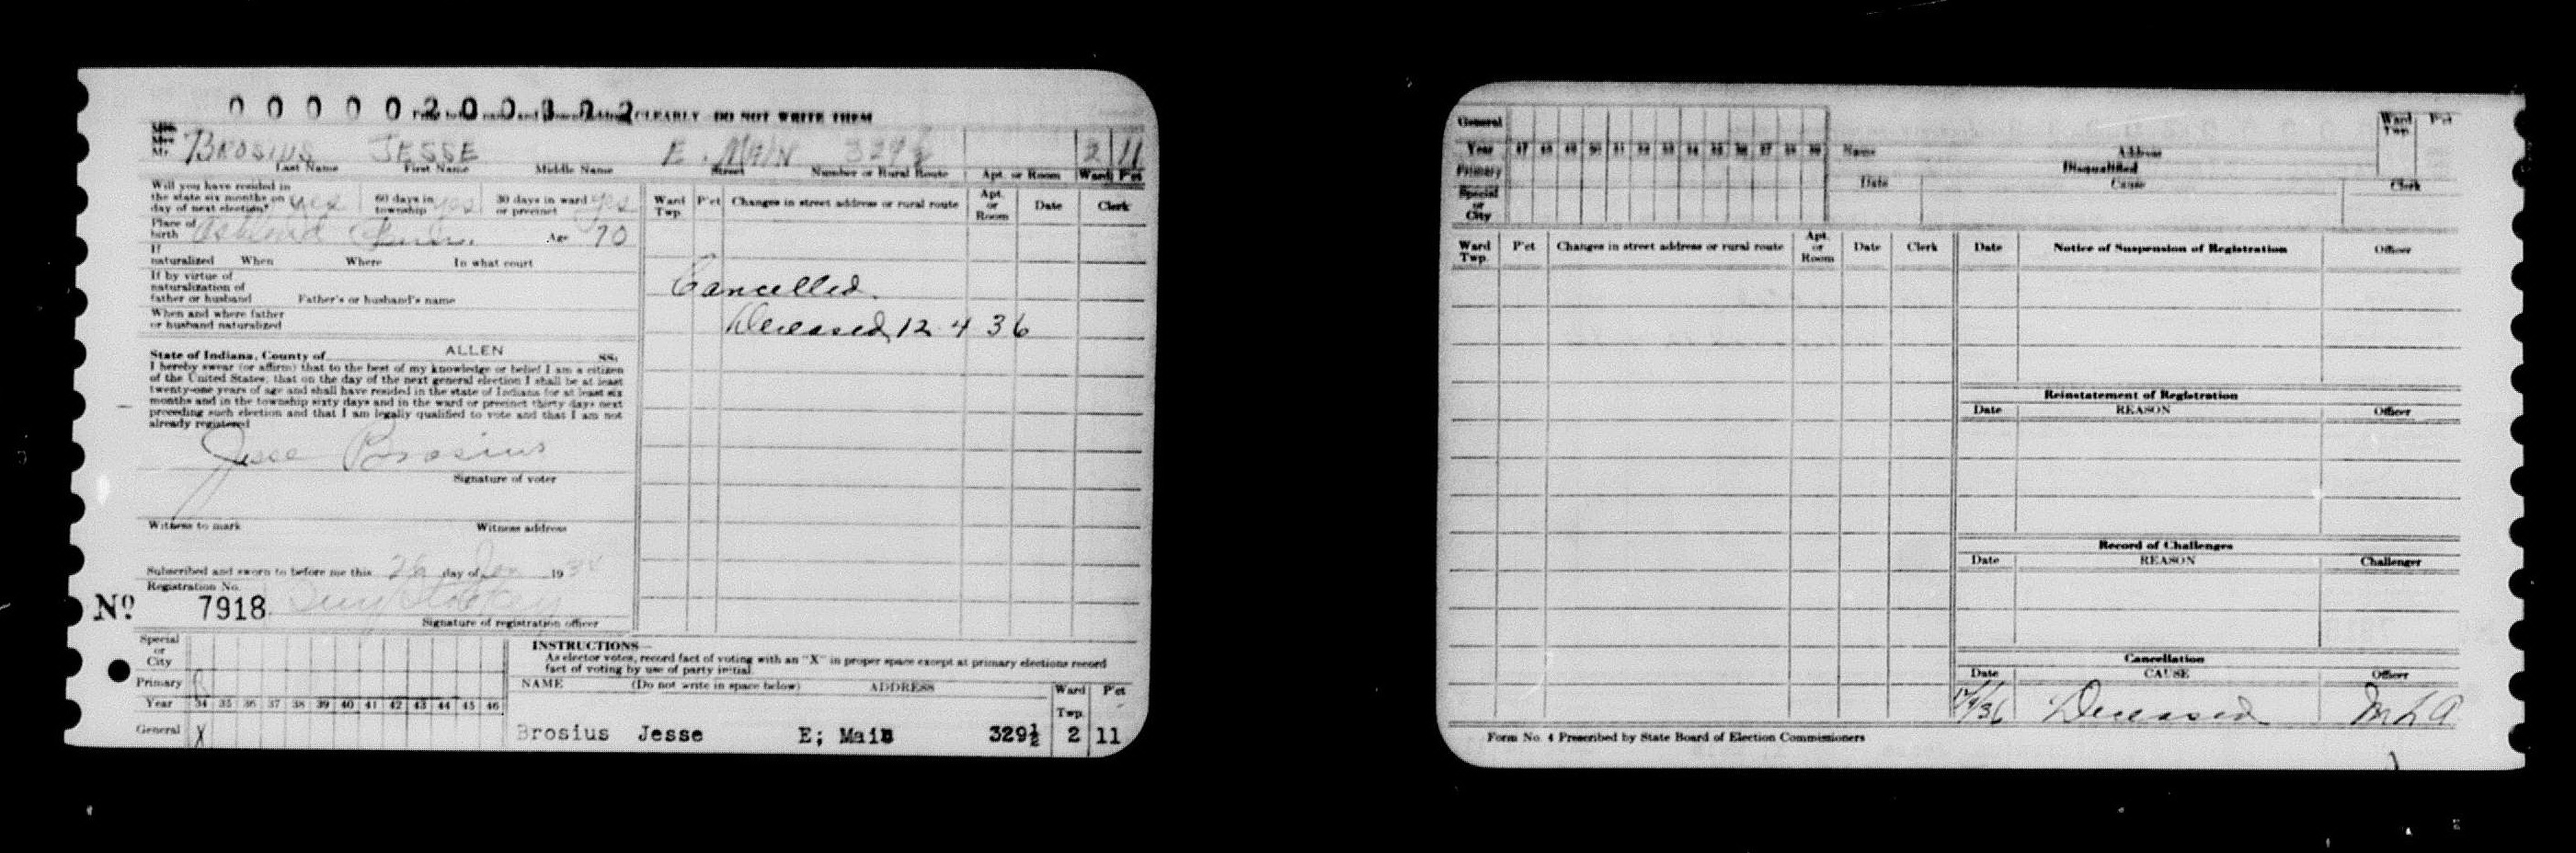 0 0 0 0 0 2 0 0 3 0 2 CLEARLY DO NOT WRITE THEM
Miss
Mrs
Mr.
BROSIUS JESSE E. MAIN 329½ 2 11
Last Name First Name Middle Name Street Number or Rural Route Apt. or Room Ward P'ct
Will you have resided in
the state six months on
day of next election? yes
60 days in
township yes
30 days in ward
or precinct yes
Place of
birth Age 70
If
naturalized When Where In what court
If by virtue of
naturalization of
father or husband Father's or husband's name
When and where father
or husband naturalized
State of Indiana, County of ALLEN ss.
I hereby swear (or affirm) that to the best of my knowledge or belief I am a citizen
of the United States; that on the day of the next general election I shall be at least
twenty-one years of age and shall have resided in the state of Indiana for at least six
months and in the township sixty days and in the ward or precinct thirty days next
preceding such election and that I am legally qualified to vote and that I am not
already registered
Jesse Brosius
Signature of voter
Witness to mark Witness address
Subscribed and sworn to before me this 26 day of Jan 19
Registration No.
Nº 7918
Signature of registration officer
Ward
Twp. P'ct Changes in street address or rural route Apt.
or
Room Date Clerk
Cancelled.
Deceased 12 4 36
Special
or
City
Primary R
Year 34 35 36 37 38 39 40 41 42 43 44 45 46
General X
INSTRUCTIONS—
As elector votes, record fact of voting with an "X" in proper space except at primary elections record
fact of voting by use of party initial.
NAME (Do not write in space below) ADDRESS Ward
Twp. P'ct
Brosius Jesse E; Main 329½ 2 11
General
Year 47 48 49 50 51 52 53 54 55 56 57 58 59
Primary
Special
or
City
Name Address
Ward
Twp. P'ct
Disqualified
Date Cause Clerk
Ward
Twp. P'ct Changes in street address or rural route Apt.
or
Room Date Clerk
Date Notice of Suspension of Registration Officer
Reinstatement of Registration
Date REASON Officer
Record of Challenges
Date REASON Challenger
Cancellation
Date CAUSE Officer
12/4/36 Deceased M L A
Form No. 4 Prescribed by State Board of Election Commissioners